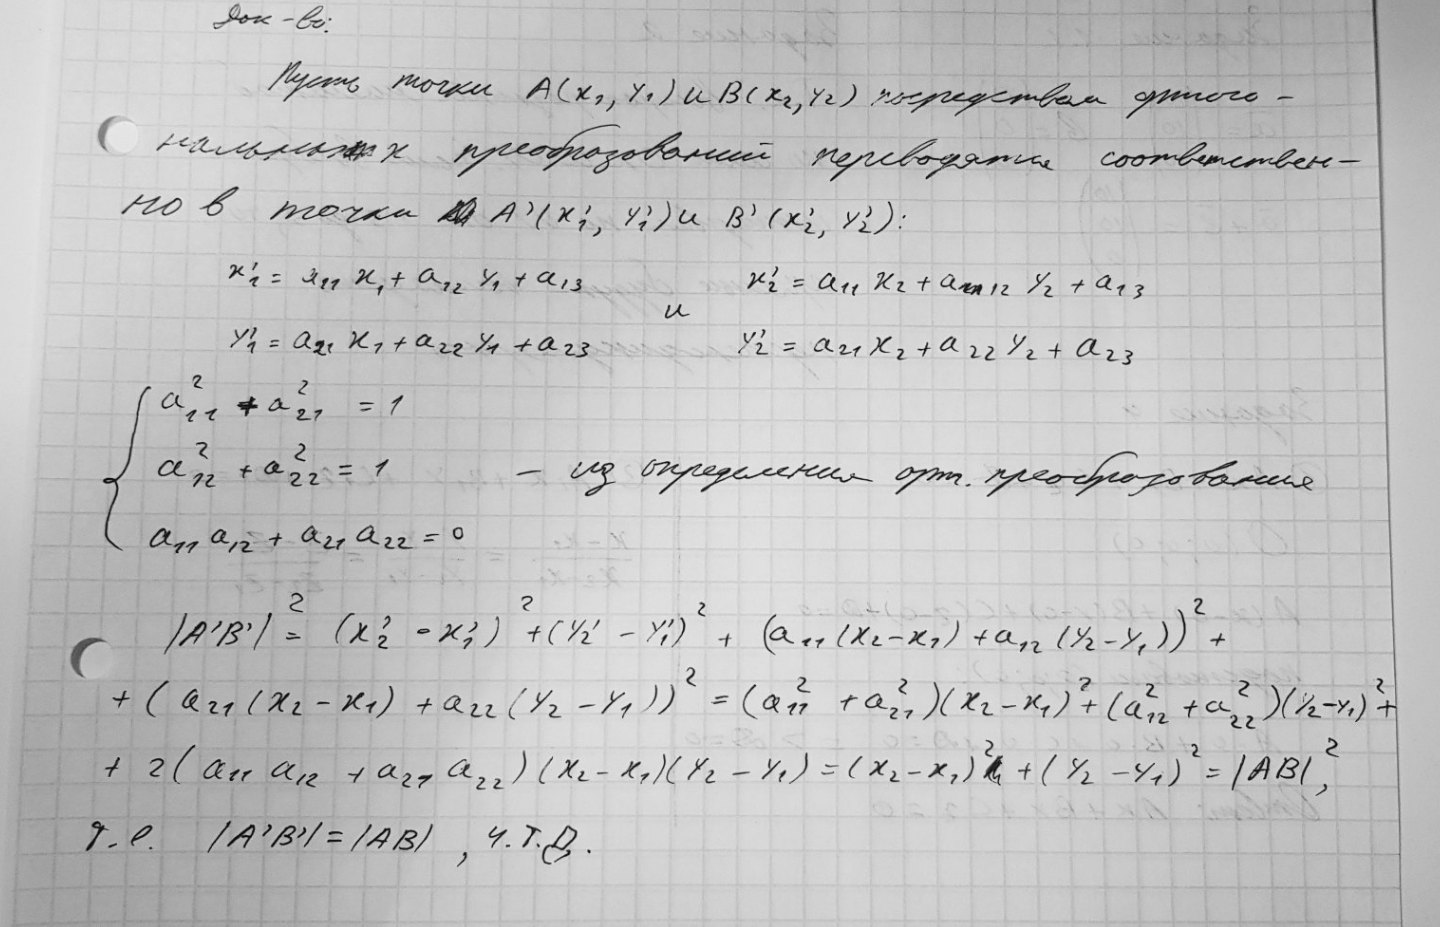 Док-во:
Пусть точки A(x₁, y₁) и B(x₂, y₂) посредствам ортого-
нальных преобразований переводятся соответствен-
но в точки A'(x'₁, y'₁) и B'(x'₂, y'₂):
x'₁ = a₁₁ x₁ + a₁₂ y₁ + a₁₃ x'₂ = a₁₁ x₂ + a₁₂ y₂ + a₁₃
и
y'₁ = a₂₁ x₁ + a₂₂ y₁ + a₂₃ y'₂ = a₂₁ x₂ + a₂₂ y₂ + a₂₃
a²₁₁ + a²₂₁ = 1
a²₁₂ + a²₂₂ = 1 – из определения орт. преобразования
a₁₁ a₁₂ + a₂₁ a₂₂ = 0
|A'B'|² = (x'₂ - x'₁)² + (y'₂ - y'₁)² + (a₁₁(x₂ - x₁) + a₁₂(y₂ - y₁))² +
+ (a₂₁(x₂ - x₁) + a₂₂(y₂ - y₁))² = (a²₁₁ + a²₂₁)(x₂ - x₁)² + (a²₁₂ + a²₂₂)(y₂ - y₁)² +
+ 2(a₁₁ a₁₂ + a₂₁ a₂₂)(x₂ - x₁)(y₂ - y₁) = (x₂ - x₁)² + (y₂ - y₁)² = |AB|²,
т.е. |A'B'| = |AB|, ч.т.д.